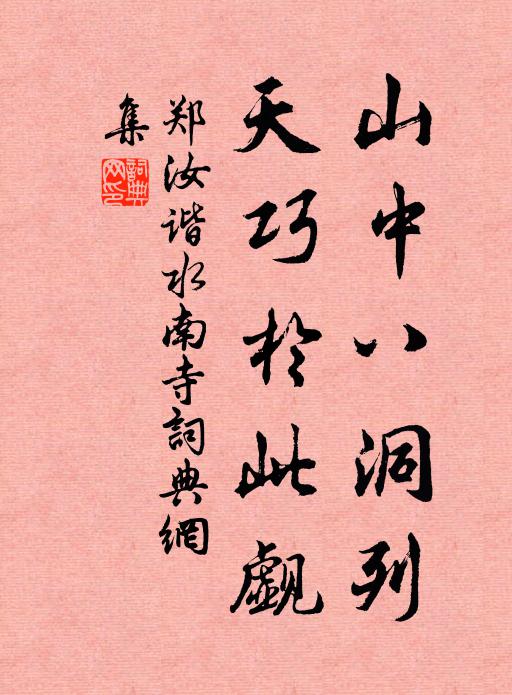 山中八洞列
天巧於此觑
郑汝谐水南寺詞典網
集
詞典网印